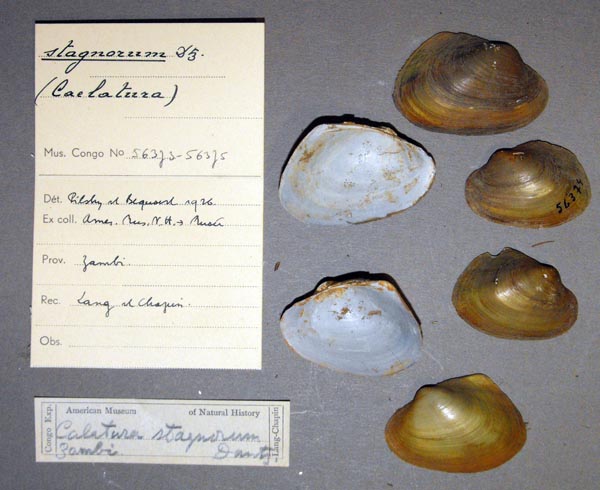 stagnorum Dz.
(Caelatura)
Mus. Congo No 56373-56375
Dét. Pilsbry et Bequaert 1926
Ex coll. Amer. Mus. N.H. → Musée
Prov. Zambi.
Rec. Lang et Chapin.
Obs.
American Museum of Natural History
Congo Exp.
Calatura stagnorum
Zambi. Dautz
Lang-Chapin
56374